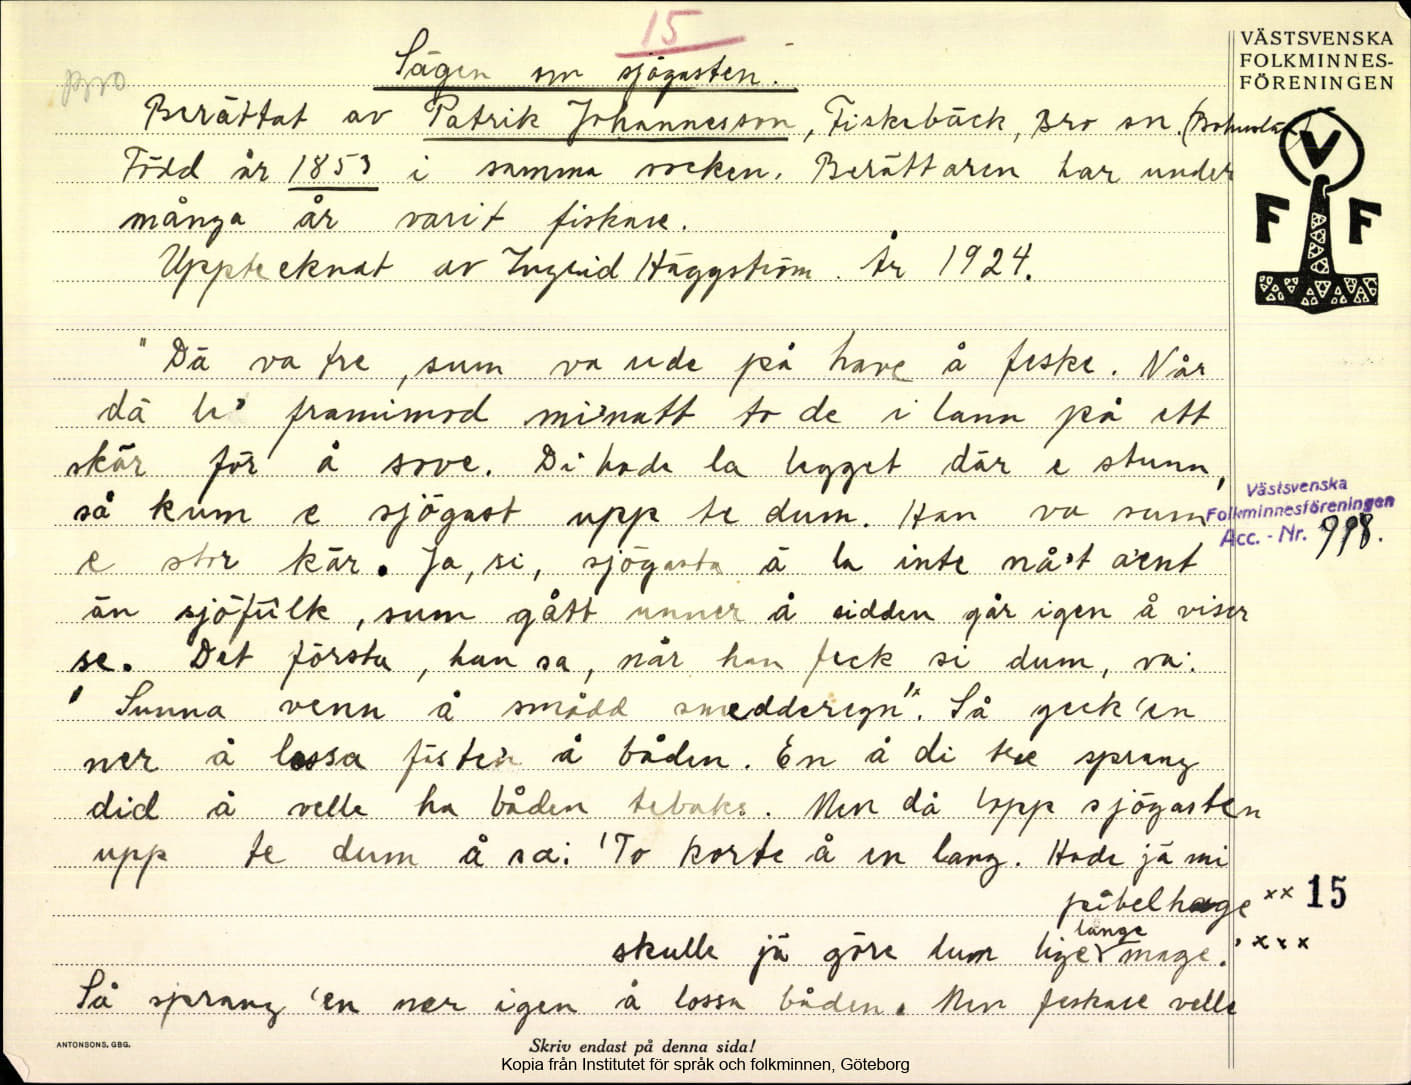 15
VÄSTSVENSKA
FOLKMINNES-
FÖRENINGEN
V
F F
Bro
Sägen om sjögasten.
Berättat av Patrik Johannesson, Fiskebäck, Bro sn. (Bohuslän)
Född år 1853 i samma socken. Berättaren har under
många år varit fiskare.
Upptecknat av Ingrid Häggström. År 1924.
"Dä va tre, sum va ude på have å feske. Når
dä le' framimod mi'natt to de i lann på ett
skär för å sove. Di hade la legget där e stunn,
så kum e sjögast upp te dum. Han va sum
e stor kär. Ja, si, sjögasta ä la inte nå't a'ent
än sjöfûlk, sum gått unner å sidden går igen å viser
se. Det första, han sa, når han feck si dum, va:
"Sunna venn å smådd smedderegn"x. Så geck 'en
ner å lossa fästen å båden. En å di tre sprang
did å velle ha båden tebaks. Men då lopp sjögasten
upp te dum å sa: 'To korte å en lang. Hade jä mi
pibelhage xx
skulle jä göre dum lige länge mage.' xxx
Så sprang 'en ner igen å lossa båden. Men feskare velle
Västsvenska
Folkminnesföreningen
Acc. - Nr. 998.
15
ANTONSONS, GBG.
Skriv endast på denna sida!
Kopia från Institutet för språk och folkminnen, Göteborg